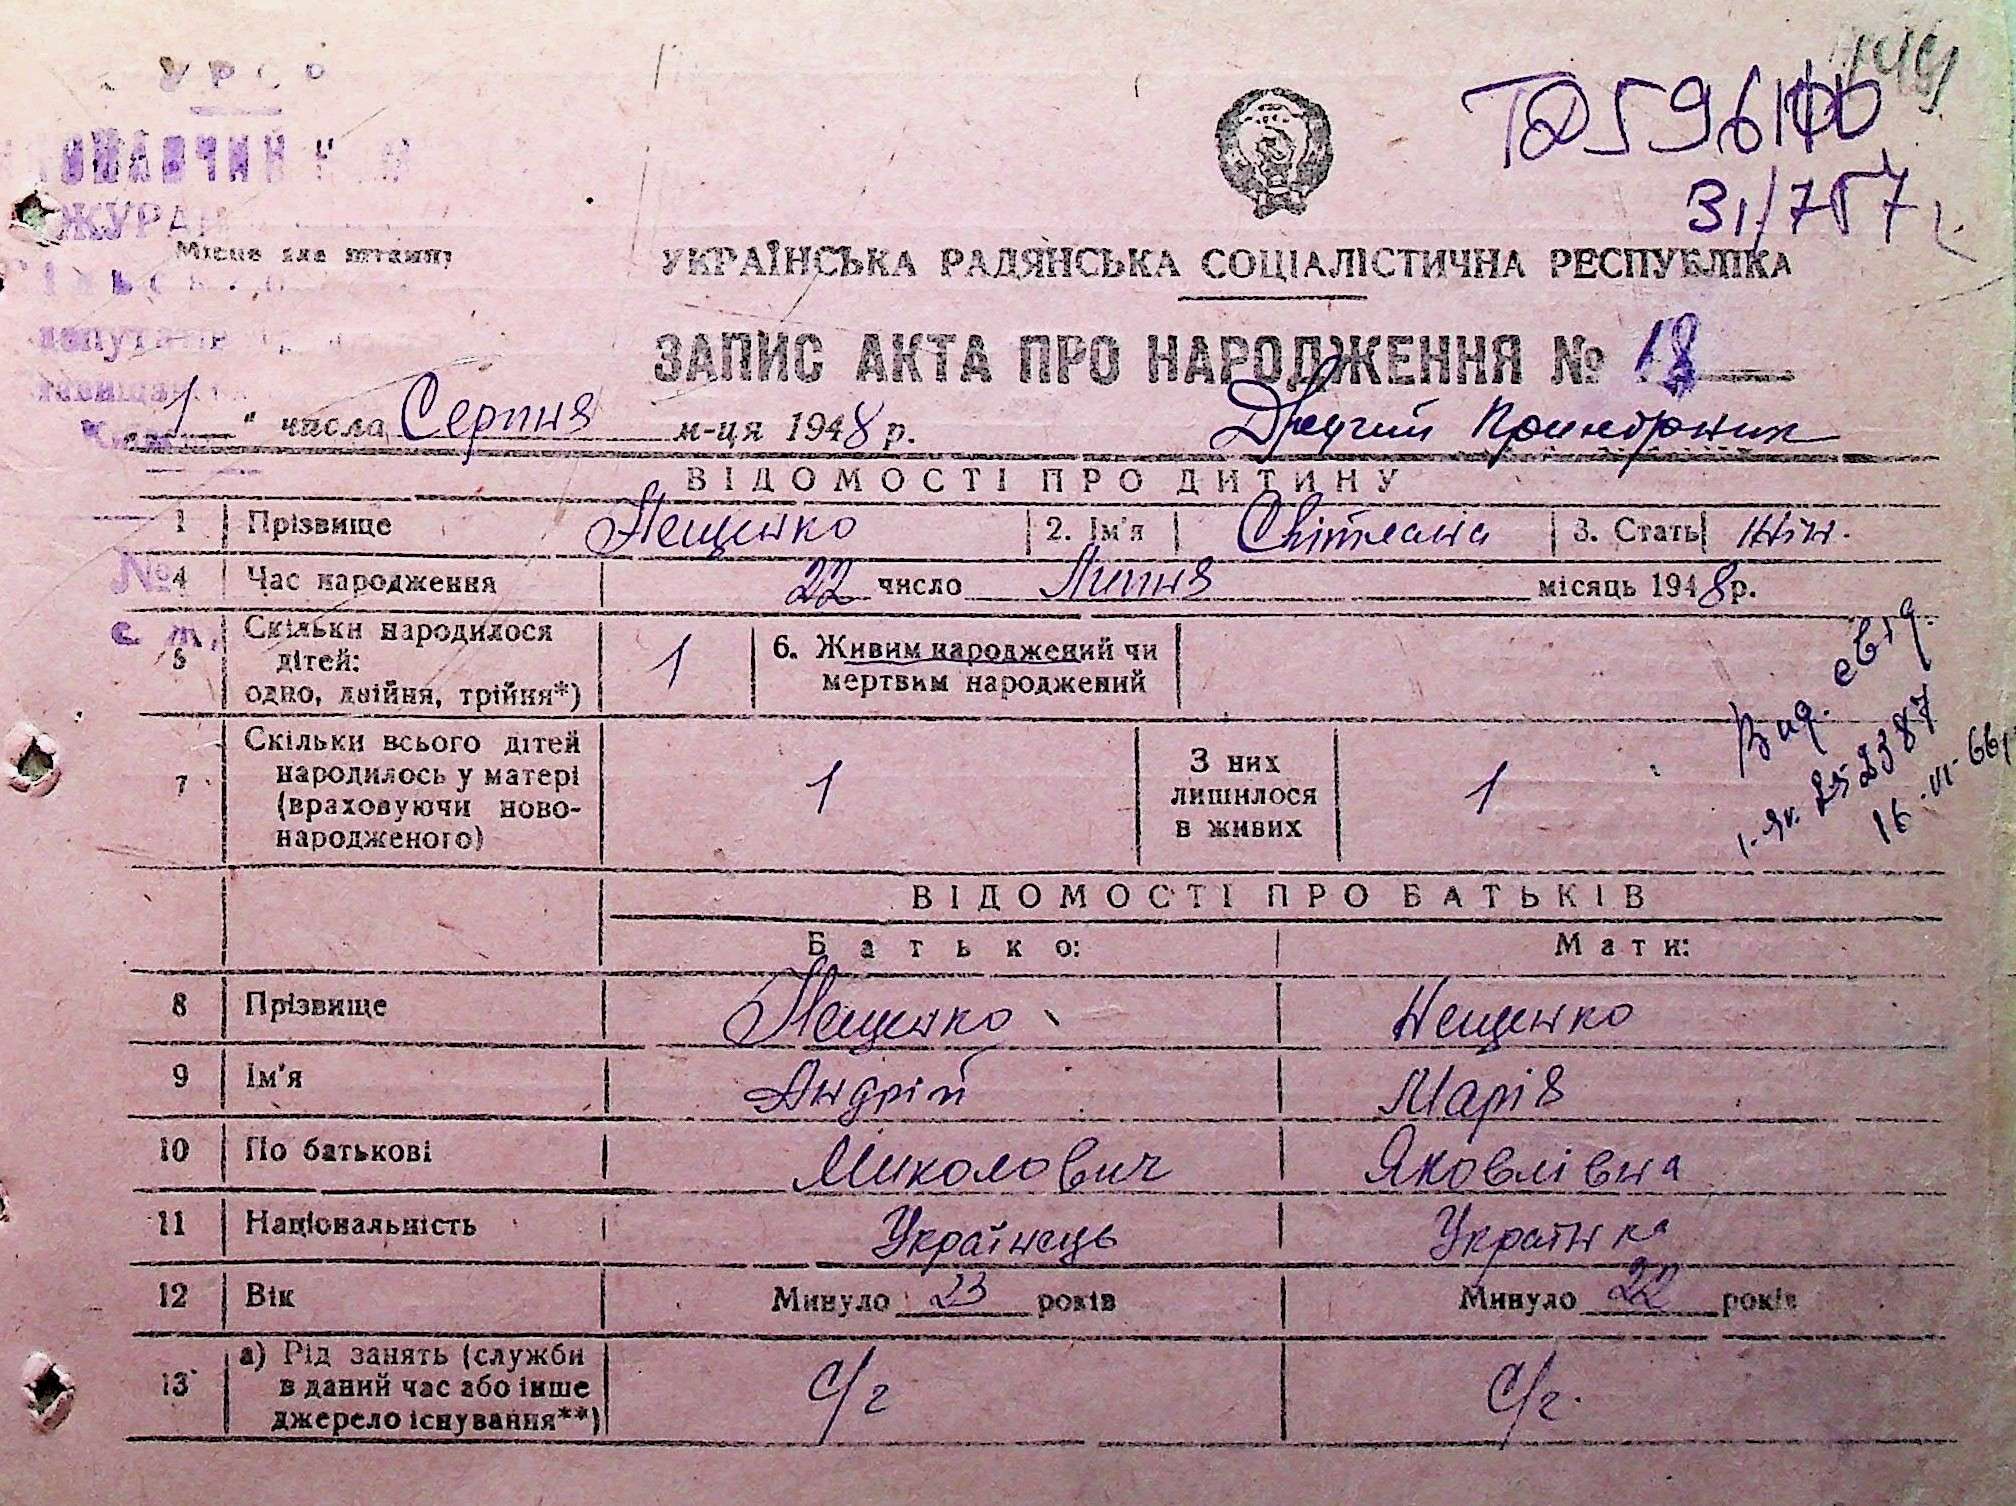 УРСР
ЖУРАВ
Місце для штампу
УКРАЇНСЬКА РАДЯНСЬКА СОЦІАЛІСТИЧНА РЕСПУБЛІКА
31/7 57 г.
ЗАПИС АКТА ПРО НАРОДЖЕННЯ № 18
„1" числа Серпня м-ця 1948 р. Другий Примірник
ВІДОМОСТІ ПРО ДИТИНУ
1 Прізвище Нещенко 2. Ім'я Світлана 3. Стать жін.
№ 4 Час народження 22 число Липня місяць 1948 р.
5 Скільки народилося дітей: одно, двійня, трійня*) 1 6. Живим народжений чи мертвим народжений
7 Скільки всього дітей народилось у матері (враховуючи новонародженого) 1 З них лишилося в живих 1
Вид. свід.
16-VI-66р.
ВІДОМОСТІ ПРО БАТЬКІВ
Батько: Мати:
8 Прізвище Нещенко Нещенко
9 Ім'я Андрій Марія
10 По батькові Миколович Яковлівна
11 Національність Українець Українка
12 Вік Минуло 23 років Минуло 22 років
13 а) Рід занять (служби в даний час або інше джерело існування**) С/г С/г.